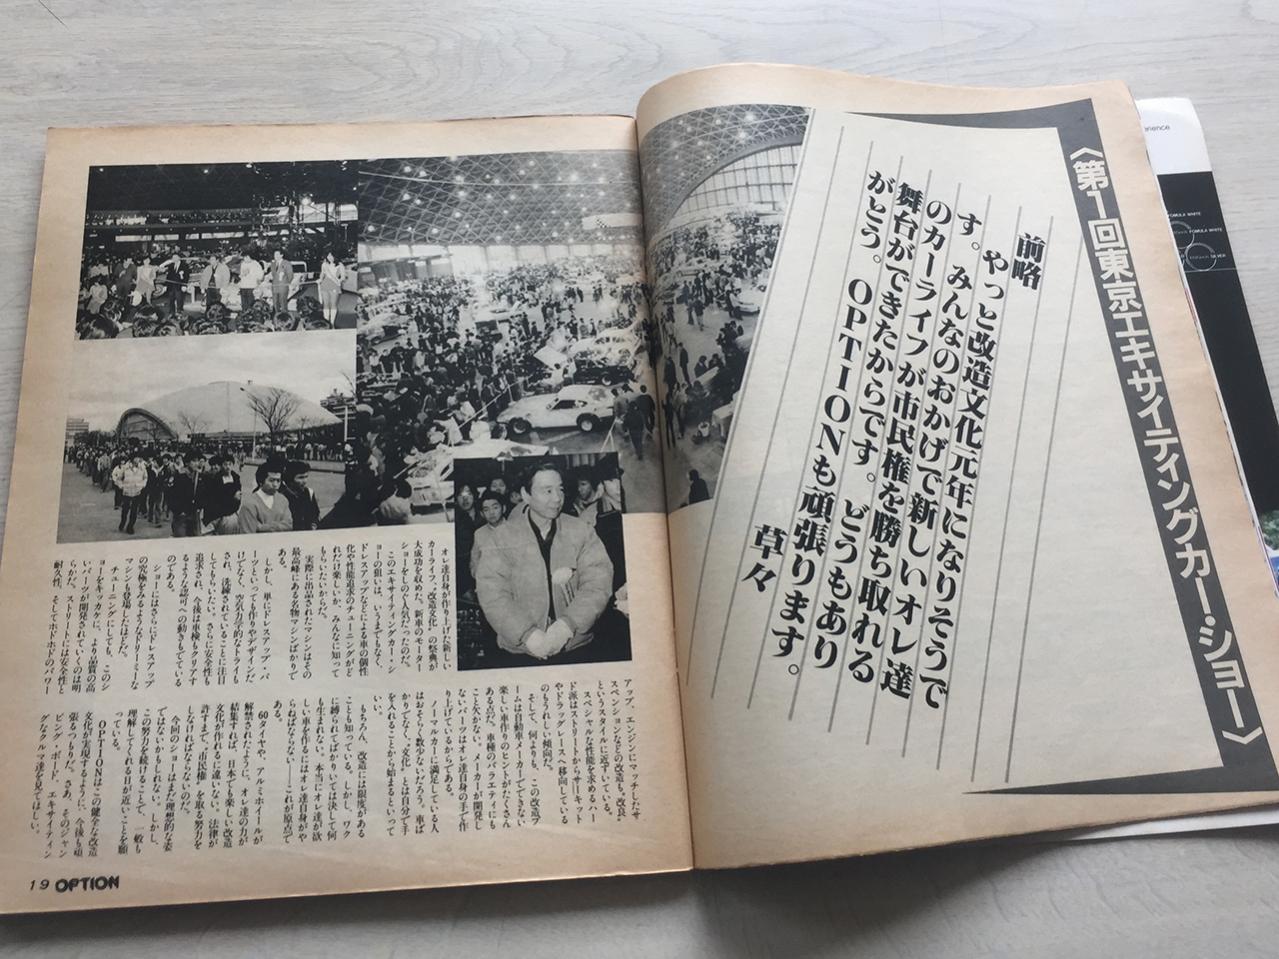 〈第1回東京エキサイティングカー・ショー〉
前略
やっと改造文化元年になりそうで
す。みんなのおかげで新しいオレ達
のカーライフが市民権を勝ち取れる
舞台ができたからです。どうもあり
がとう。OPTIONも頑張ります。
草々
オレ達自身が作り上げた新しい
カーライフ、“改造文化”の祭典が
大成功を収めた。新車のモーター
ショーをしのぐ人気だったのだ。
このエキサイティングカー・シ
ョーの狙いは、いうまでもなく、
ドレスアップなどによる車の個性
化や性能追求のチューニングがど
れだけ楽しいか、みんなに知って
もらいたいからだ。
実際に出品されたマシンはその
最高峰にある名物マシンばかりで
ある。
しかし、単にドレスアップ・パ
ーツといっても作りやデザインだ
けでなく、空気力学的なトライも
され、洗練されていることに注目
してもらいたい。さらに安全性も
追求され、今後は車検もクリアす
るような認可への動きもでてきた
のである。
ショーにはさらにドレスアップ
の究極をみるようなドリーミーな
マシンも登場したほどだ。
チューニングにしても、このシ
ョーをキッカケに、より品質の高
いパーツが開発されていくのは明
らかだ。ストリートには安全性と
耐久性、そしてホドホドのパワー
アップ、エンジンにマッチしたサ
スペンションなどの改造も“改良”
というスタイルに近ずいている。
スペシャルな性能を求めるハー
ド派はストリートからサーキット
やドラッグレースへ移向している
のもうれしい傾向だ。
そして、何よりも、この改造ブ
ームは自動車メーカーでできない
楽しい車作りのヒントがたくさん
ある点だ。車種のバラエティにも
こと欠かない。メーカーが開発し
ないパーツはオレ達自身の手で作
り上げているからである。
ノーマルカーに満足している人
はおそらく数少ないだろう。車ば
かりでなく、“文化”とは自分で手
を入れることから始まるといって
いい。
もちろん、改造には限度がある
ことも知っている。しかし、ワク
に縛られてばかりいては決して何
も生まれない。本当にオレ達が欲
しい車を作るにはオレ達自身がや
らねばならない——これが原点で
ある。
60タイヤや、アルミホイールが
解禁されたように、オレ達の力が
結集すれば、日本でも楽しい改造
文化が作れるに違いない。法律が
許すまで“市民権”を取る努力を
しなければならないのだ。
今回のショーはまだ理想的な姿
ではないかもしれない。しかし、
この努力を続けることで、一般も
理解してくれる日が近いことを願
っている。
OPTIONはこの健全な改造
文化が実現するように、今後も頑
張るつもりだ。さあ、そのジャン
ピング・ボード、エキサイティン
グなクルマ達を見てほしい。
19 OPTION
FOMULA WHITE
FOMULA WHITE
SILVER